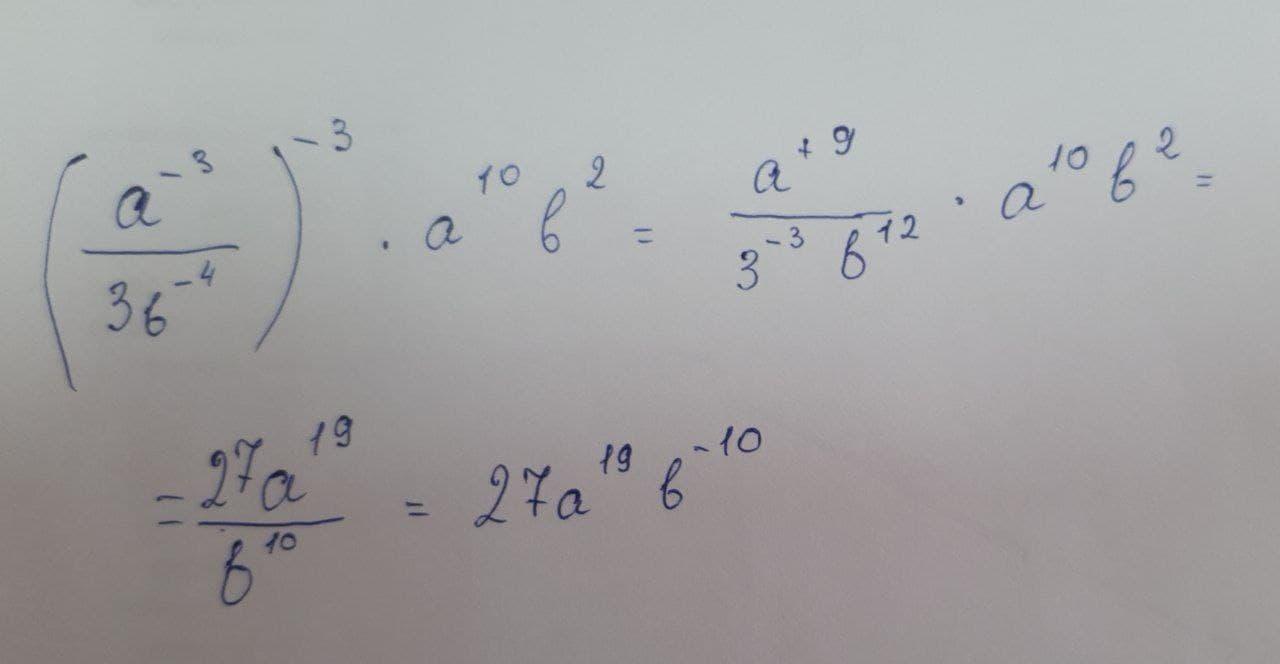 (a⁻³/3в⁻⁴)⁻³ · a¹⁰ в² = a⁺⁹/3⁻³ в¹² · a¹⁰ в² =
= 27a¹⁹/в¹⁰ = 27a¹⁹ в⁻¹⁰